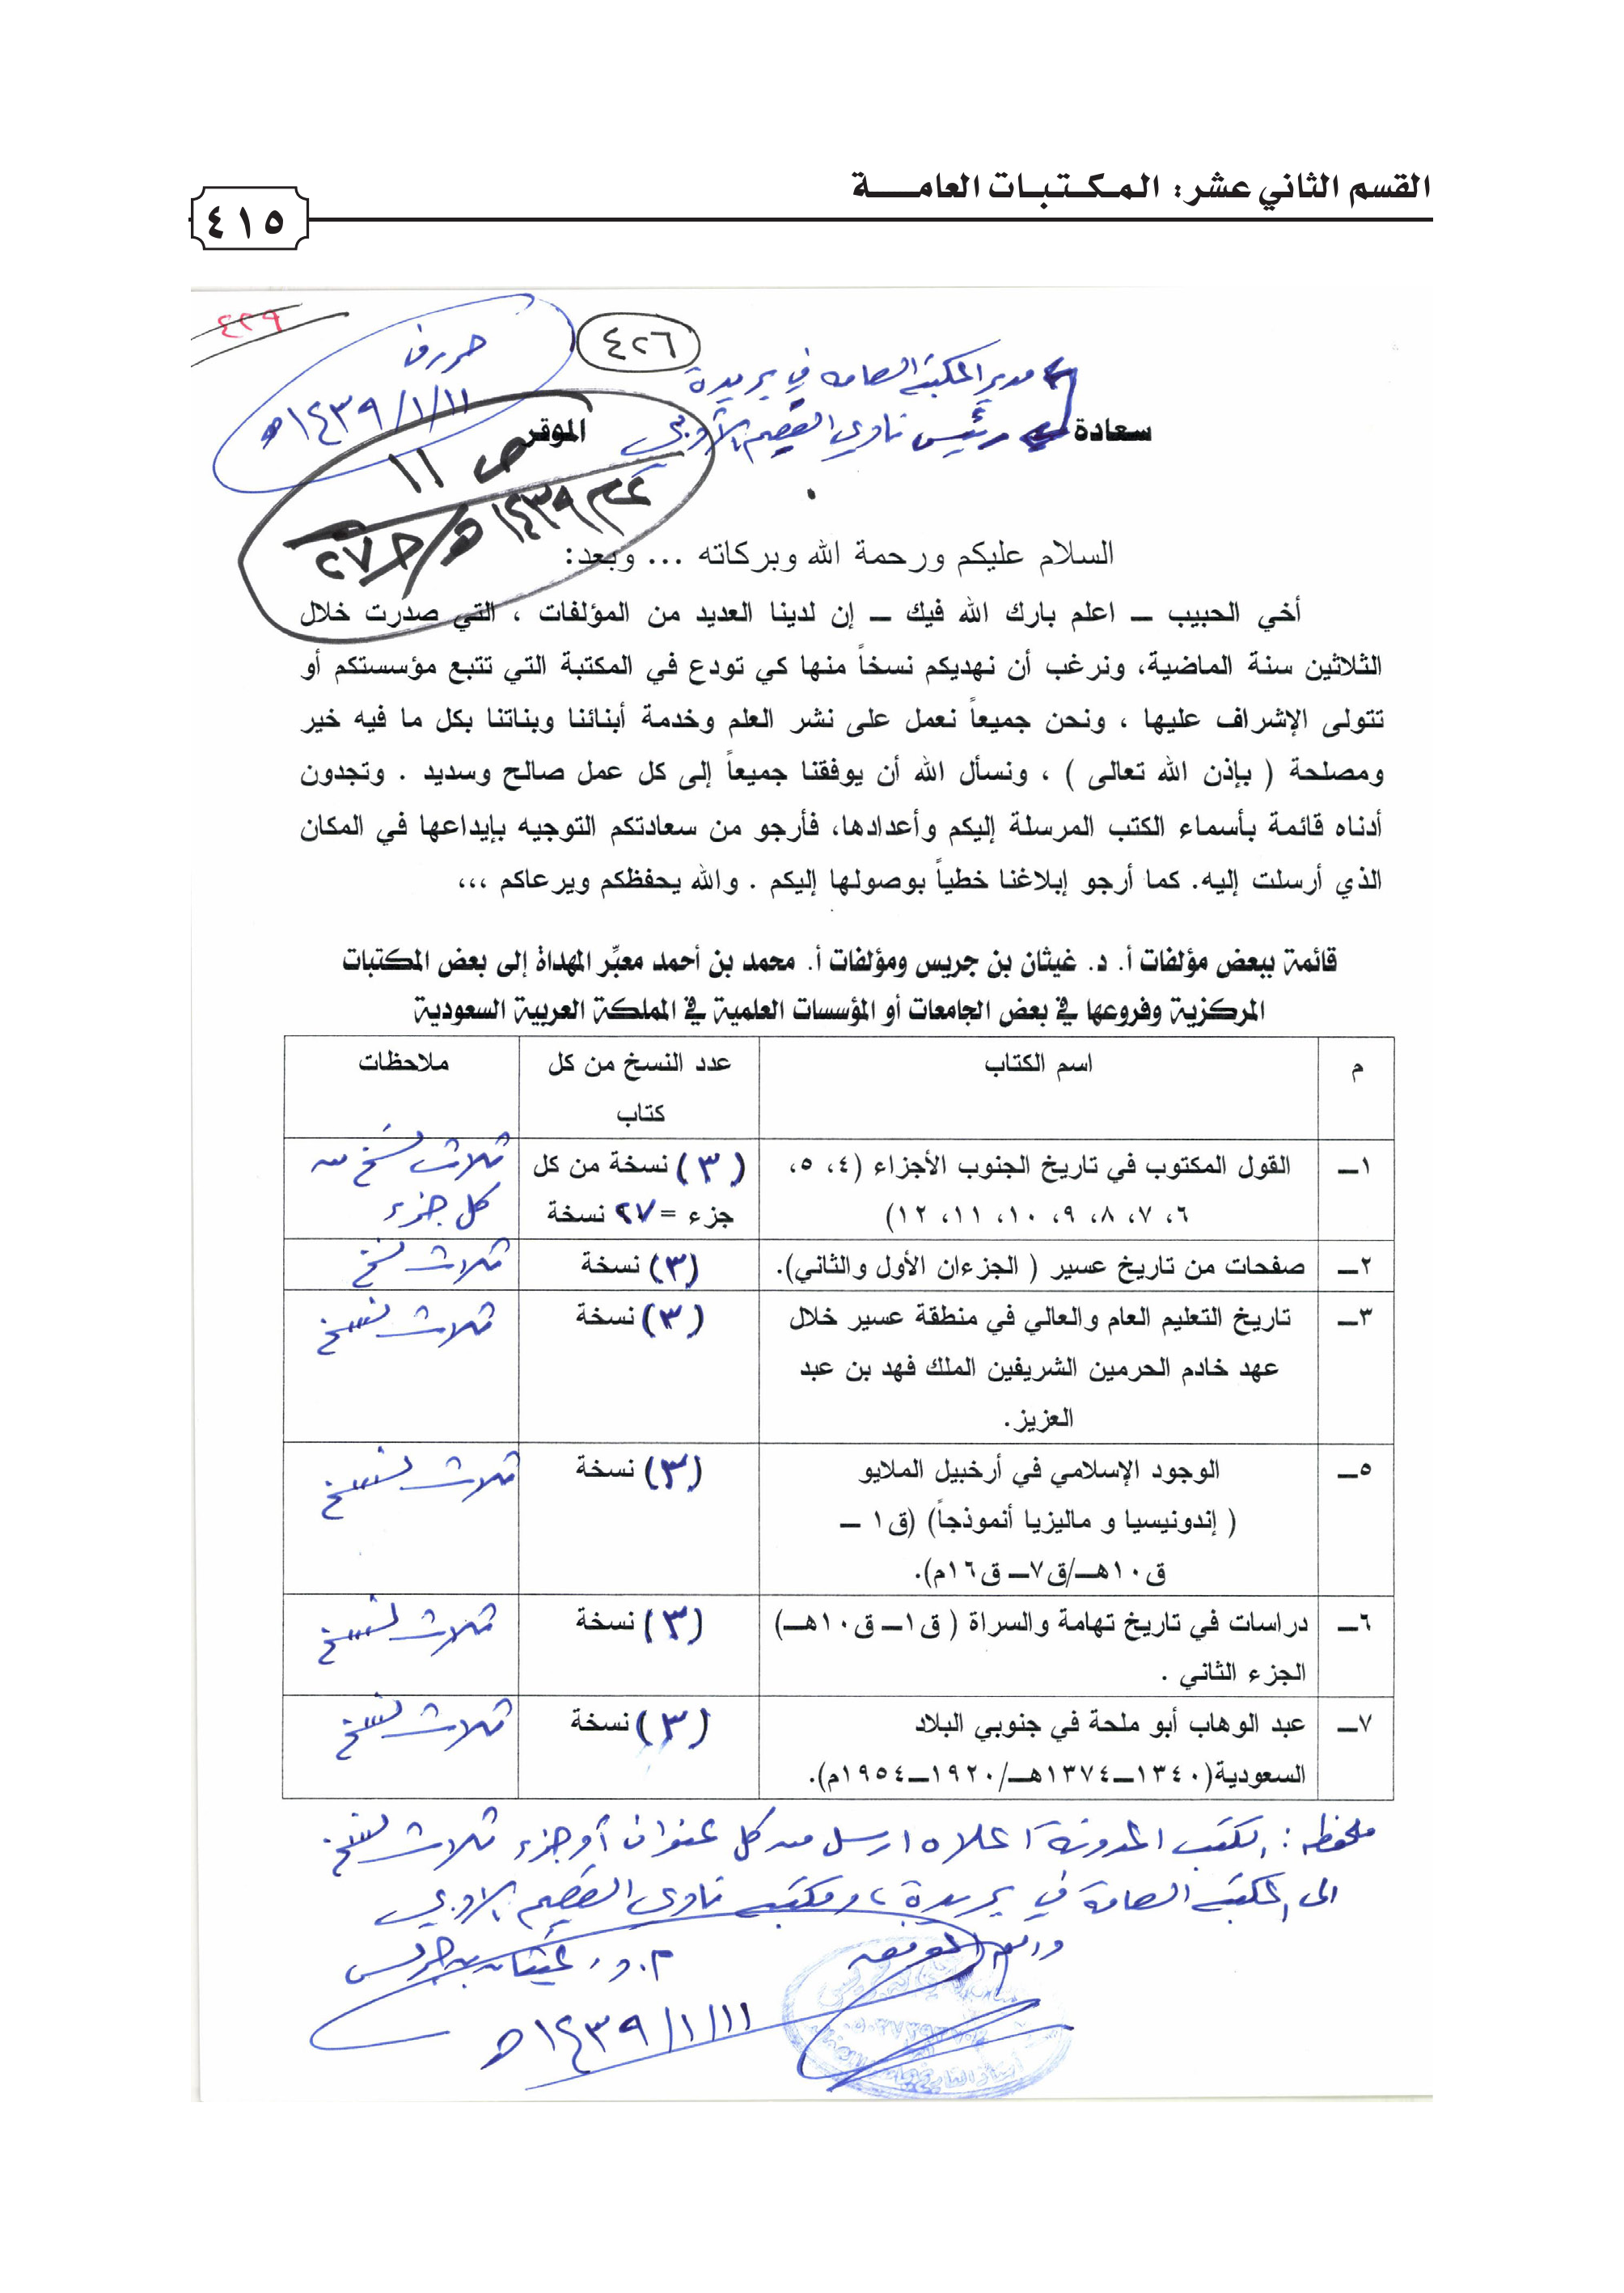 القسم الثاني عشر: المكتبات العامة
٤١٥
٤٢٩
٤٢٦
حرر في
١٤٣٩/١/١١هـ
مدير المكتبة العامة في بريدة
سعادة رئيس نادي القصيم الأدبي الموقر
ص ١١
١٤٣٩هـ
السلام عليكم ورحمة الله وبركاته ... وبعد:
أخي الحبيب ــ اعلم بارك الله فيك ــ إن لدينا العديد من المؤلفات ، التي صدرت خلال
الثلاثين سنة الماضية، ونرغب أن نهديكم نسخاً منها كي تودع في المكتبة التي تتبع مؤسستكم أو
تتولى الإشراف عليها ، ونحن جميعاً نعمل على نشر العلم وخدمة أبنائنا وبناتنا بكل ما فيه خير
ومصلحة ( بإذن الله تعالى ) ، ونسأل الله أن يوفقنا جميعاً إلى كل عمل صالح وسديد . وتجدون
أدناه قائمة بأسماء الكتب المرسلة إليكم وأعدادها، فأرجو من سعادتكم التوجيه بإيداعها في المكان
الذي أرسلت إليه. كما أرجو إبلاغنا خطياً بوصولها إليكم . والله يحفظكم ويرعاكم ،،،
قائمة ببعض مؤلفات أ. د. غيثان بن جريس ومؤلفات أ. محمد بن أحمد معبِّر المهداة إلى بعض المكتبات
المركزية وفروعها في بعض الجامعات أو المؤسسات العلمية في المملكة العربية السعودية
م اسم الكتاب عدد النسخ من كل ملاحظات
كتاب
١ــ القول المكتوب في تاريخ الجنوب الأجزاء (٤، ٥، (٣) نسخة من كل ثلاث نسخ من
٦، ٧، ٨، ٩، ١٠، ١١، ١٢) جزء = ٢٧ نسخة كل جزء
٢ــ صفحات من تاريخ عسير ( الجزءان الأول والثاني). (٣) نسخة ثلاث نسخ
٣ــ تاريخ التعليم العام والعالي في منطقة عسير خلال (٣) نسخة ثلاث نسخ
عهد خادم الحرمين الشريفين الملك فهد بن عبد
العزيز.
٥ــ الوجود الإسلامي في أرخبيل الملايو (٣) نسخة ثلاث نسخ
( إندونيسيا و ماليزيا أنموذجاً) (ق١ ــ
ق١٠هـ/ق٧ــ ق١٦م).
٦ــ دراسات في تاريخ تهامة والسراة ( ق١ــ ق١٠هـ) (٣) نسخة ثلاث نسخ
الجزء الثاني .
٧ــ عبد الوهاب أبو ملحة في جنوبي البلاد (٣) نسخة ثلاث نسخ
السعودية(١٣٤٠ــ١٣٧٤هـ/١٩٢٠ــ١٩٥٤م).
ملحظة : الكتب المدونة أعلاه ارسل من كل عنوان أو جزء ثلاث نسخ
الى المكتبة العامة في بريدة ، ومكتبة نادي القصيم الادبي
والله الموفق
أ. د. غيثان بن جريس
١٤٣٩/١/١١هـ